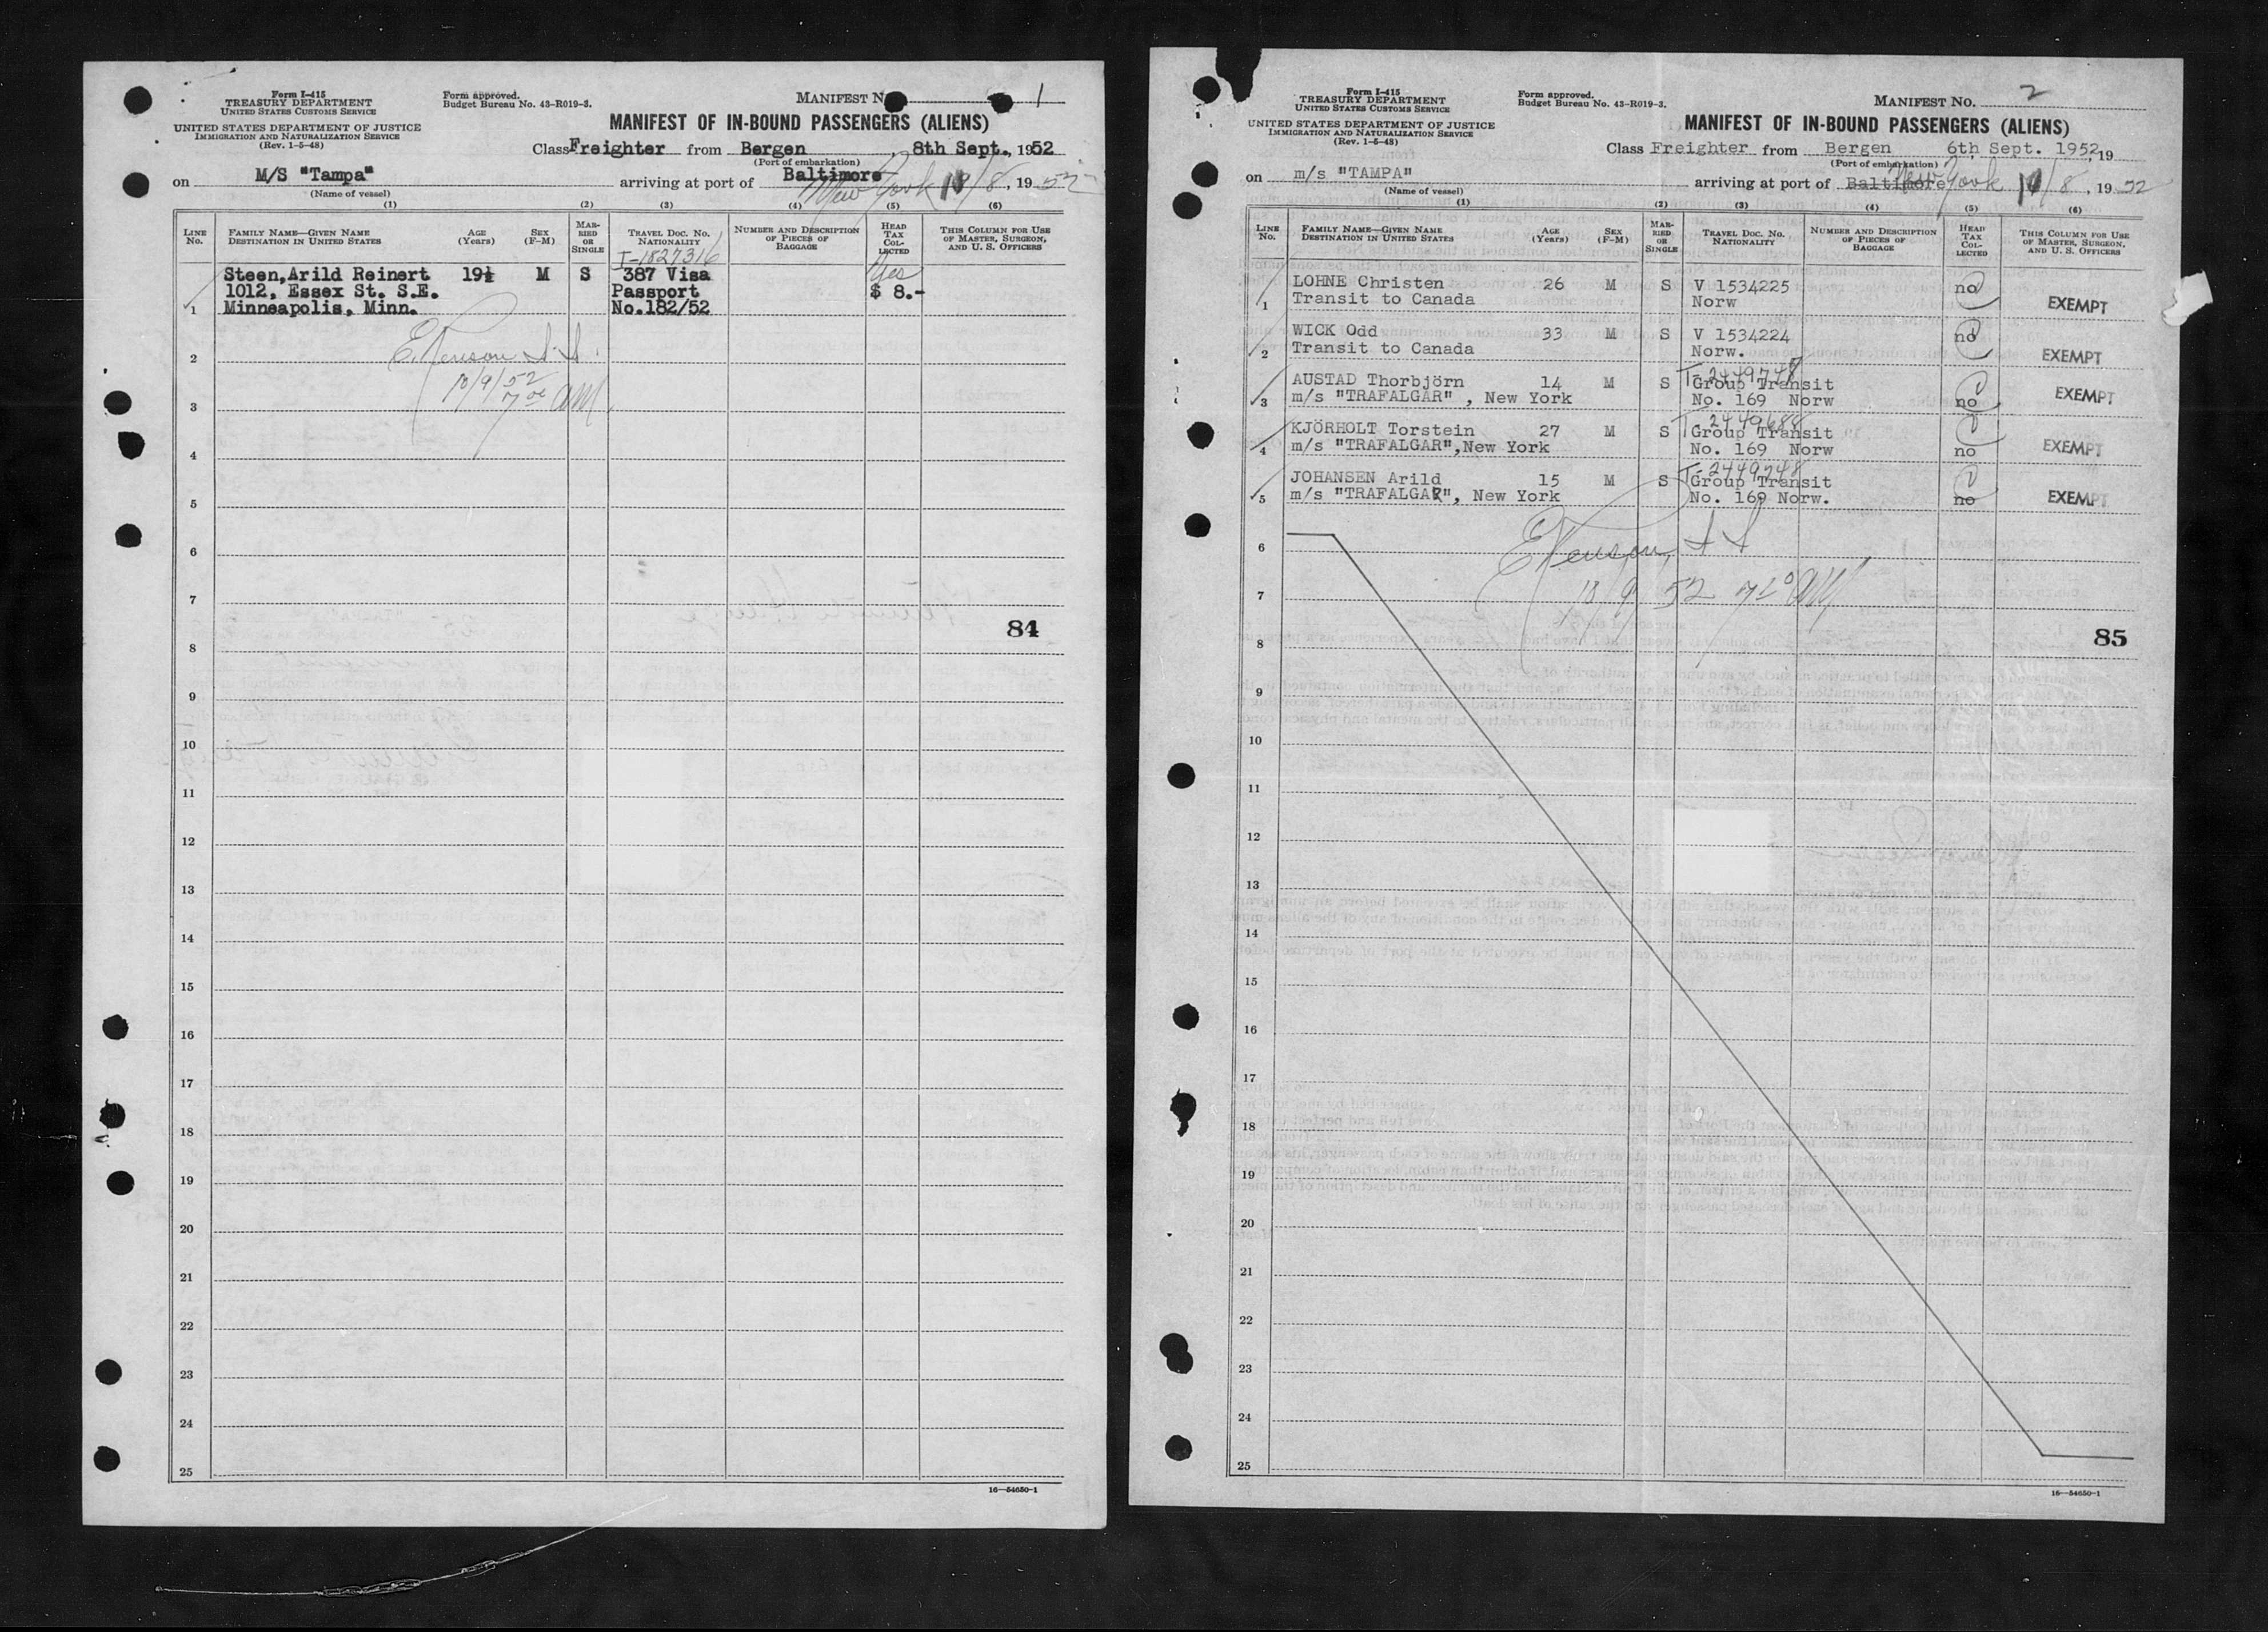 Form I-415
TREASURY DEPARTMENT
UNITED STATES CUSTOMS SERVICE
UNITED STATES DEPARTMENT OF JUSTICE
IMMIGRATION AND NATURALIZATION SERVICE
(Rev. 1-5-48)
Form approved.
Budget Bureau No. 43-R019-3.
MANIFEST N 1
MANIFEST OF IN-BOUND PASSENGERS (ALIENS)
Class Freighter from Bergen, 8th Sept., 1952
(Port of embarkation)
on M/S "Tampa" arriving at port of Baltimore New York 10/8, 1952
(Name of vessel)
(1) (2) (3) (4) (5) (6)
LINE No.
FAMILY NAME—GIVEN NAME
DESTINATION IN UNITED STATES
AGE (Years)
SEX (F-M)
MARRIED OR SINGLE
TRAVEL DOC. NO.
NATIONALITY
NUMBER AND DESCRIPTION OF PIECES OF BAGGAGE
HEAD TAX COLLECTED
THIS COLUMN FOR USE OF MASTER, SURGEON, AND U. S. OFFICERS
I-1527316
Steen,Arild Reinert 19½ M S 387 Visa Yes
1012, Essex St. S.E. Passport $ 8.-
1 Minneapolis, Minn. No.182/52
2
10/9/52
7 00 AM
3
4
5
6
7
84
8
9
10
11
12
13
14
15
16
17
18
19
20
21
22
23
24
25
16—54650-1
Form I-415
TREASURY DEPARTMENT
UNITED STATES CUSTOMS SERVICE
UNITED STATES DEPARTMENT OF JUSTICE
IMMIGRATION AND NATURALIZATION SERVICE
(Rev. 1-5-48)
Form approved.
Budget Bureau No. 43-R019-3.
MANIFEST NO. 2
MANIFEST OF IN-BOUND PASSENGERS (ALIENS)
Class Freighter from Bergen 6th Sept. 1952, 19
(Port of embarkation)
on m/s "TAMPA" arriving at port of Baltimore New York 10/8, 1952
(Name of vessel)
(1) (2) (3) (4) (5) (6)
LINE No.
FAMILY NAME—GIVEN NAME
DESTINATION IN UNITED STATES
AGE (Years)
SEX (F-M)
MARRIED OR SINGLE
TRAVEL DOC. NO.
NATIONALITY
NUMBER AND DESCRIPTION OF PIECES OF BAGGAGE
HEAD TAX COLLECTED
THIS COLUMN FOR USE OF MASTER, SURGEON, AND U. S. OFFICERS
LOHNE Christen 26 M S V 1534225 no
1 Transit to Canada Norw EXEMPT
WICK Odd 33 M S V 1534224 no
2 Transit to Canada Norw. EXEMPT
AUSTAD Thorbjörn 14 M S Group Transit
3 m/s "TRAFALGAR" , New York No. 169 Norw no EXEMPT
KJÖRHOLT Torstein 27 M S Group Transit
4 m/s "TRAFALGAR",New York No. 169 Norw no EXEMPT
JOHANSEN Arild 15 M S Group Transit
5 m/s "TRAFALGAR", New York No. 169 Norw. no EXEMPT
6
10 9 52 AM
7
8
85
9
10
11
12
13
14
15
16
17
18
19
20
21
22
23
24
25
16—54650-1